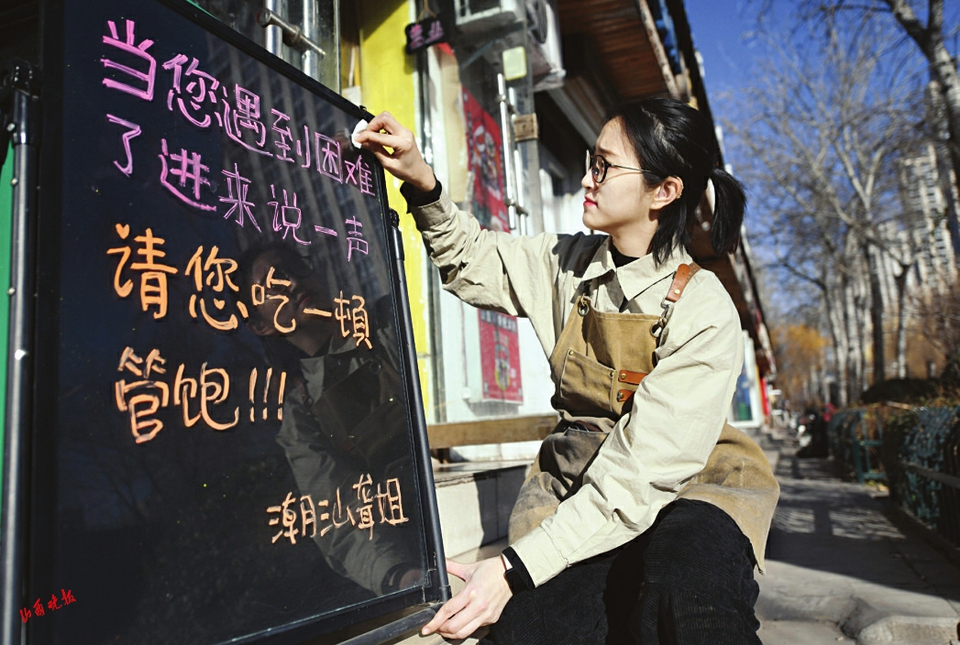 当您遇到困难
了进来说一声
请您吃一頓
管饱!!!
潮汕聋姐
山西晚报